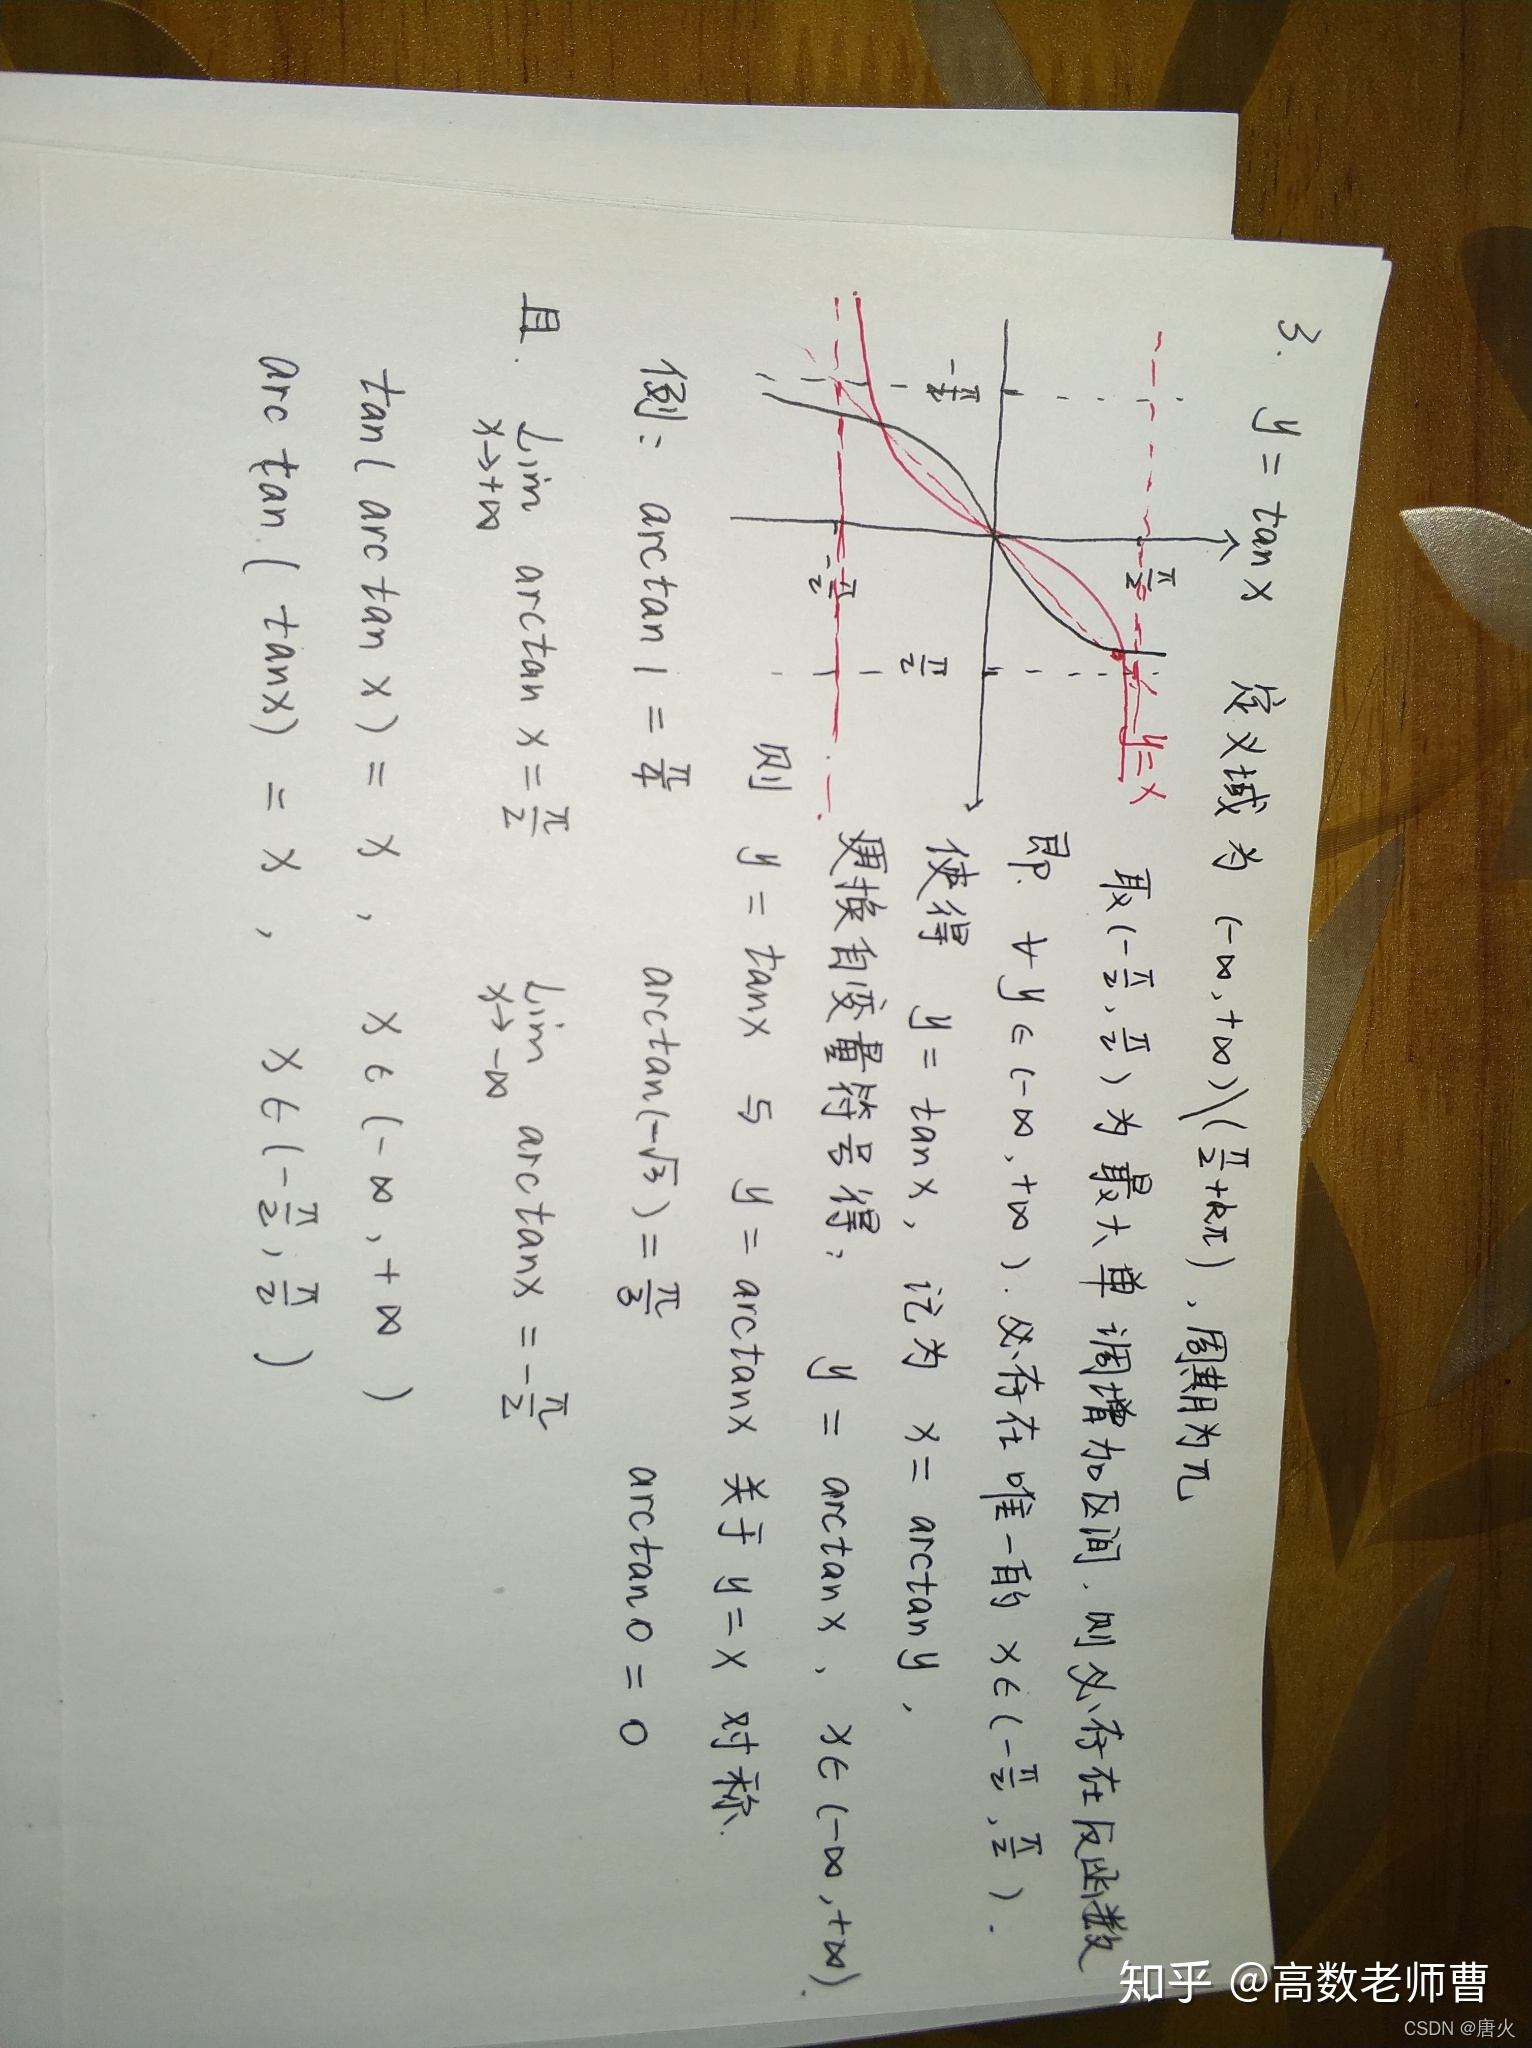 3. y = tanx 定义域为 (-∞,+∞)\(π/2+kπ), 周期为π
取(-π/2, π/2)为最大单调增加区间, 则必存在反函数
即. ∀y∈(-∞,+∞). 必存在唯一的 x∈(-π/2, π/2).
使得 y = tanx, 记为 x = arctany,
更换自变量符号得, y = arctanx, x∈(-∞,+∞).
则 y = tanx 与 y = arctanx 关于 y = x 对称.
y=x
π/2
-π/2
π/2
-π/2
例: arctan1 = π/4 arctan(-√3) = π/3 arctan0 = 0
且. Lim x→+∞ arctanx = π/2 Lim x→-∞ arctanx = -π/2
tan(arctanx) = x, x∈(-∞,+∞)
arctan(tanx) = x, x∈(-π/2, π/2)
知乎 @高数老师曹
CSDN @唐火